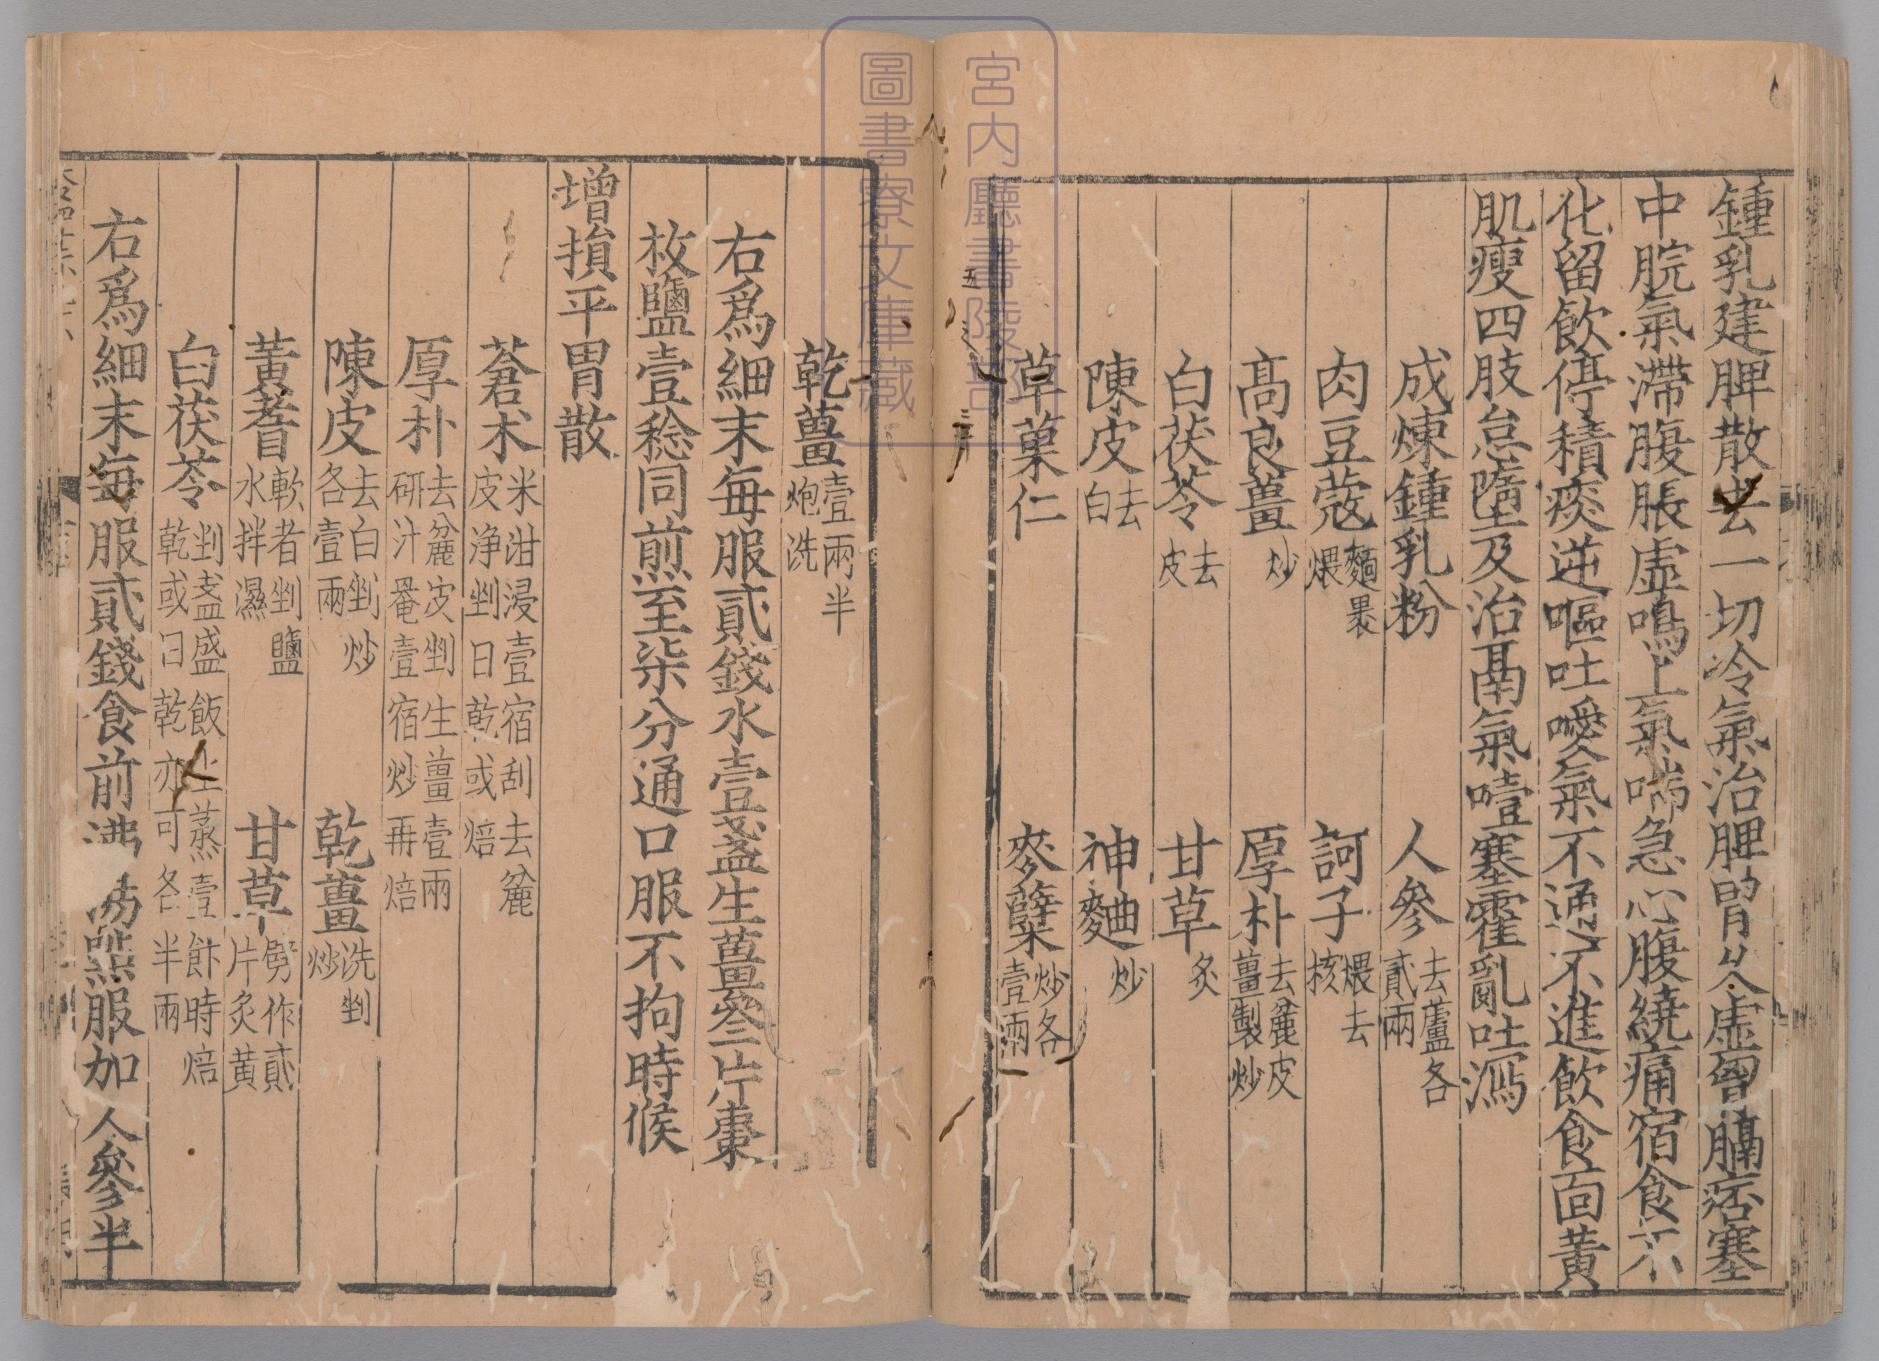 鍾乳建脾散去一切冷氣治脾胃虛胷膈痞塞
中脘氣滯腹脹虛鳴上氣喘急心腹繞痛宿食不
化留飲停積痰逆嘔吐噯氣不通不進飲食面黃
肌瘦四肢怠墮及治鬲氣噎塞霍亂吐瀉
成煉鍾乳粉 人參去蘆各貳兩
肉豆蔻麵裹煨 訶子煨去核
高良薑炒 厚朴去麄皮薑製炒
白茯苓去皮 甘草炙
陳皮去白 神麯炒
草菓仁 麥糵炒各壹兩
乾薑壹兩半炮洗
右爲細末每服貳錢水壹盞生薑叄片棗
枚鹽壹稔同煎至柒分通口服不拘時候
增損平胃散
蒼朮米泔浸壹宿刮去麄皮浄剉日乾或焙
厚朴去麄皮剉生薑壹兩研汁罨壹宿炒再焙
陳皮去白剉炒各壹兩 乾薑洗剉炒
黃耆軟者剉鹽水拌濕 甘草劈作貳片炙黃
白茯苓剉盞盛飯上蒸壹飪時焙乾或日乾亦可各半兩
右爲細末每服貳錢食前沸湯點服加人參半
宮内廳書陵部
圖書寮文庫藏